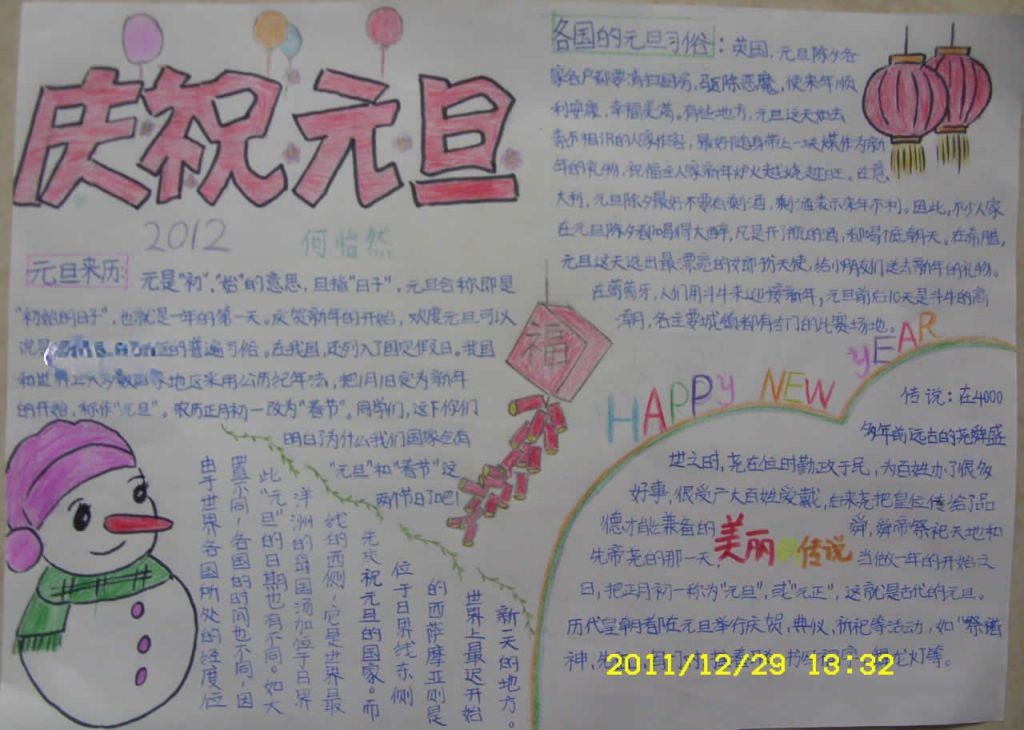 庆祝元旦
2012 何怡然
元旦来历:
元是"初","始"的意思,旦指"日子",元旦合称即是
"初始的日子",也就是一年的第一天。庆贺新年的开始,欢度元旦可以
说是
的普遍习俗。在我国,还列入了固定假日。我国
和世界上大多数国家地区采用公历纪年法,把1月1日定为新年
的开始,称作"元旦"。农历正月初一改为"春节"。同学们,这下你们
明白了为什么我们国家会有
"元旦"和"春节"这
两个节日了吧!
福
由于世界各国所处的经度位
置不同,各国的时间也不同,因
此"元旦"的日期也有不同。如大
洋洲的岛国汤加位于日界
线的西侧,它是世界最
先庆祝元旦的国家。而
位于日界线东侧
的西萨摩亚则是
世界上最迟开始
新一天的地方。
各国的元旦习俗:英国,元旦除夕各
家各户都要清扫厨房,驱除恶魔,使来年顺
利安康,幸福美满。有些地方,元旦这天如去
素不相识的人家作客,最好随身带上一块煤作为新
年的礼物,祝福主人家新年炉火越烧越旺。在意
大利,元旦除夕最好不要有剩酒,剩酒表示来年不利。因此,不少人家
在元旦除夕都喝得大醉,凡是开了瓶的酒,都喝个底朝天。在希腊,
元旦这天选出最漂亮的女郎扮天使,给小朋友们送去新年的礼物。
在葡萄牙,人们用斗牛来迎接新年,元旦前后10天是斗牛的高
潮,各主要城镇都有专门的比赛场地。
HAPPY NEW YEAR
美丽的传说
传说:在4000
多年前远古的尧舜盛
世之时,尧在位时勤政于民,为百姓办了很多
好事,很受广大百姓爱戴,后来尧把皇位传给了品
德才能兼备的舜,舜帝祭祀天地和
先帝尧的那一天当做一年的开始之
日,把正月初一称为"元旦",或"元正",这就是古代的元旦。
历代皇朝都在元旦举行庆贺,典仪,祈祀等活动,如"祭诸
神,
龙灯等。
2011/12/29 13:32